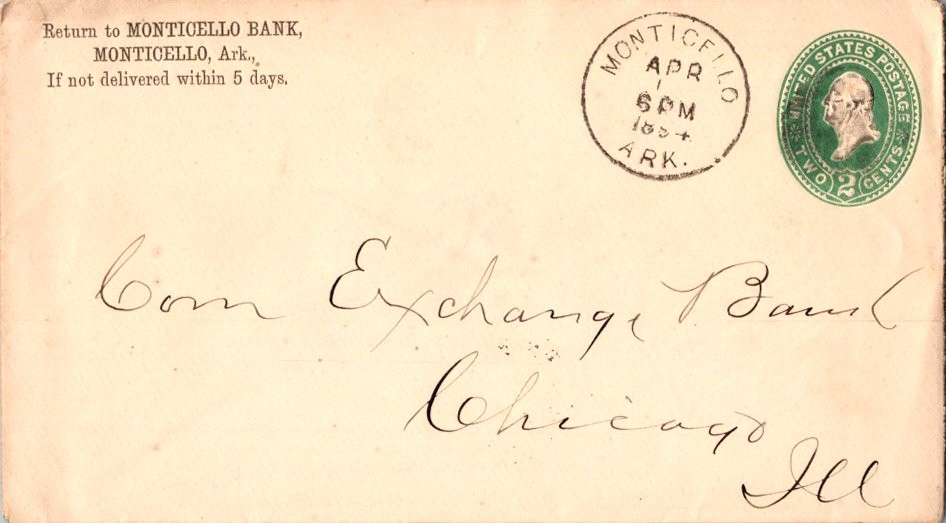 Return to MONTICELLO BANK,
MONTICELLO, Ark.,
If not delivered within 5 days.
MONTICELLO
APR
1
6 PM
1894
ARK.
UNITED STATES POSTAGE
TWO 2 CENTS
Corn Exchange Bank
Chicago
Ill